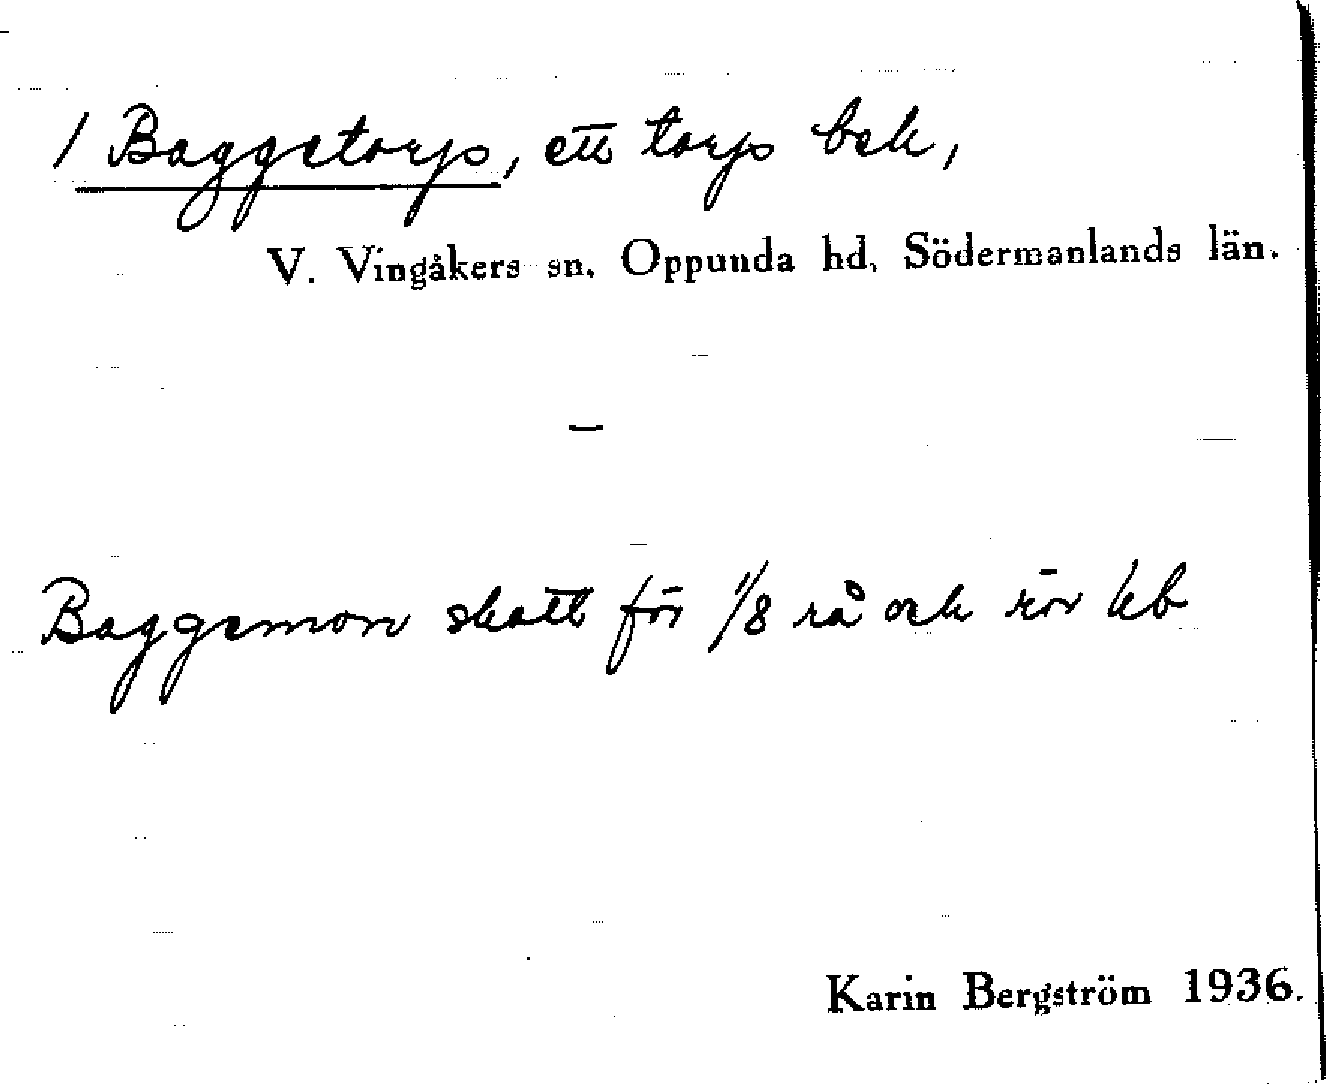 / Baggetorp, ett torp bek,
V. Vingåkers sn, Oppunda hd, Södermanlands län.
–
Baggemon skatt för 1/8 rå och rör kb
Karin Bergström 1936.